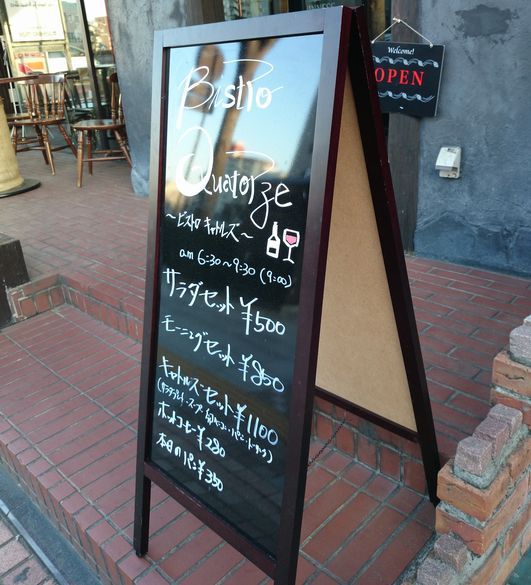 Bistro
Quatorze
～ビストロ キャトルズ～
am 6:30～9:30 (9:00)
サラダセット ¥500
モーニングセット ¥850
キャトルズセット ¥1100
ホットコーヒー ¥280
本日のパン ¥350
Welcome!
OPEN